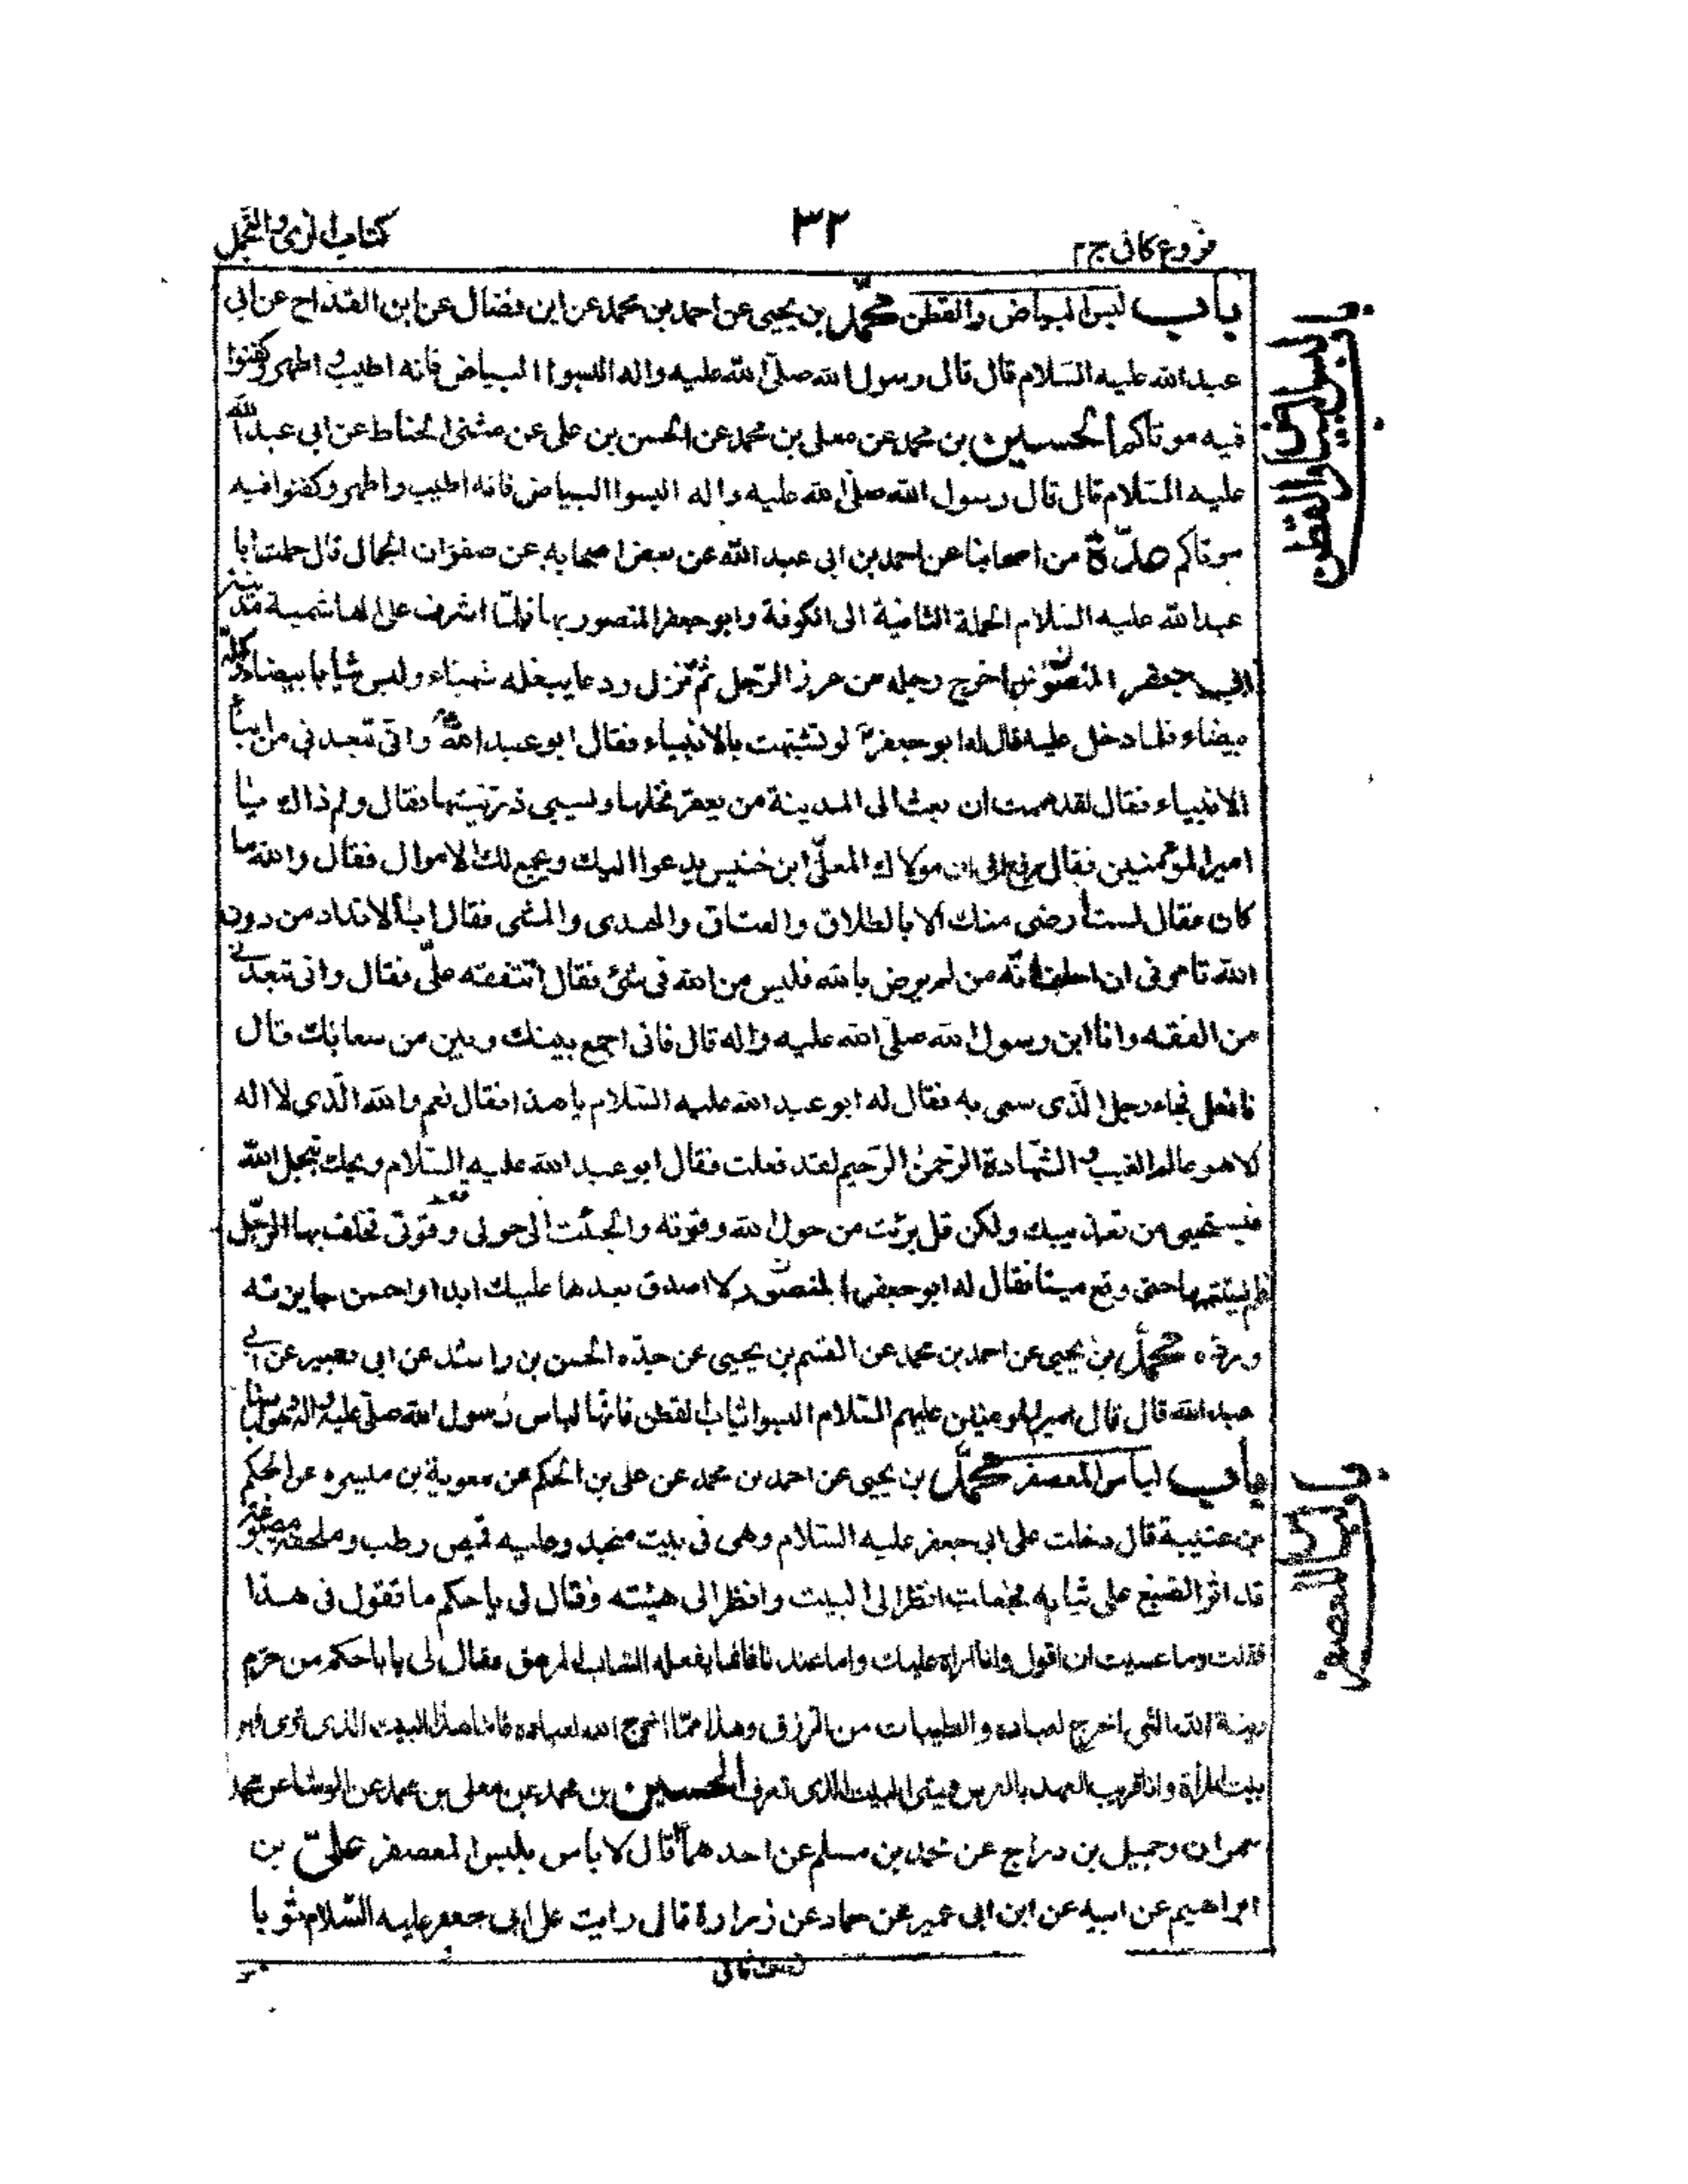 فروع كافی ج۲
۳۲
كتاب الزی والتجمل
باب لبس البياض والقطن محمّد بن يحيى عن احمد بن محمد عن ابن فضال عن ابن القداح عن ابی
عبد الله عليه السّلام قال قال رسول الله صلّى الله عليه واله البسوا البياض فانه اطيب و اطهر وكفنوا
فيه موتاكم الحسين بن محمد عن معلى بن محمد عن الحسن بن على عن مثنى الحناط عن ابى عبد الله
عليه السّلام قال قال رسول الله صلّى الله عليه واله البسوا البياض فانه اطيب واطهر وكفنوا فيه
موتاكم عدّة من اصحابنا عن احمد بن ابى عبد الله عن بعض اصحابه عن صفوان الجمال قال حملت ابا
عبد الله عليه السّلام الحملة الثانية الى الكوفة وابو جعفر المنصور بها فلمّا اشرف على الهاشمية مدينة
ابی جعفر المنصور بها اخرج رجله من غرز الرّجل ثمّ نزل ودعا ببغلة شهباء ولبس ثيابا بيضاء وكمّة
بيضاء فلما دخل عليه قال له ابو جعفر لو تشبّهت بالانبياء فقال ابو عبد الله وانى تبعدنى من ابناء
الانبياء فقال لقد هممت ان ابعث الى المدينة من يعقر نخلها ويسبى ذرّيتها فقال ولم ذاك يا
امير المؤمنين فقال رفع الى ان مولاك المعلّى ابن خنيس يدعوا اليك ويجمع لك الاموال فقال والله ما
كان فقال لست ارضى منك الا بالطلاق والعتاق والهدى والمشى فقال ابالانداد من دون
الله تامرنى ان احلف انّه من لم يرض بالله فليس من الله فى شئ فقال اتتفقه علىّ فقال وانى تبعدنى
من الفقه وانا ابن رسول الله صلّى الله عليه واله قال فانى اجمع بينك وبين من سعا بك قال
فافعل فجاء رجل الّذى سعى به فقال له ابو عبد الله عليه السّلام يا هذا فقال نعم والله الّذى لا اله
الا هو عالم الغيب و الشّهادة الرّحمن الرّحيم لقد فعلت فقال ابو عبد الله عليه السّلام ويحك تبجل الله
فيستحيى من تعذيبك ولكن قل برئت من حول الله وقوته والجئت الى حولى وقوتى فحلف بها الرّجل
فلم يستتمها حتى وقع ميتا فقال له ابو جعفر المنصور لا اصدق بعدها عليك ابدا واحسن جايزته
وردّه محمّد بن يحيى عن احمد بن محمد عن القسم بن يحيى عن جدّه الحسن بن راشد عن ابى بصير عن ابی
عبد الله قال قال امير المومنين عليهم السّلام البسوا ثياب القطن فانّها لباس رسول الله صلّى عليه و اله وهو لباسنا
باب لباس المعصفر محمّد بن يحيى عن احمد بن محمد عن على بن الحكم عن معوية بن ميسره عن الحكم
بن عتيبة قال دخلت على ابى جعفر عليه السّلام وهى فى بيت منجد وعليه قميص رطب وملحفة مصبوغة
قد اثر الصّبغ على ثيابه فجعلت انظر الى البيت وانظر الى هيئته فقال لى يا حكم ما تقول فى هذا
فقلت وما عسيت ان اقول وانا اراه عليك واما عندنا فانما يفعله الشاب المرهق فقال لى يا با حكم من حرّم
زينة الله التى اخرج لعباده والطيبات من الرّزق وهذا ممّا اخرج الله لعباده فاما هذا البيت الذى ترى فهو
بيت المرأة وانا قريب العهد بالعرس وبيتى البيت الذى تعرف الحسين بن محمد عن معلى بن محمد عن الوشا عن محمد
بن حمران وجميل بن دراج عن محمد بن مسلم عن احدهما قال لا باس بلبس المعصفر علىّ بن
ابراهيم عن ابيه عن ابن ابى عمير عن حماد عن زرارة قال رايت على ابى جعفر عليه السّلام ثوبا
باب لبس البياض والقطن
باب لبس المعصفر